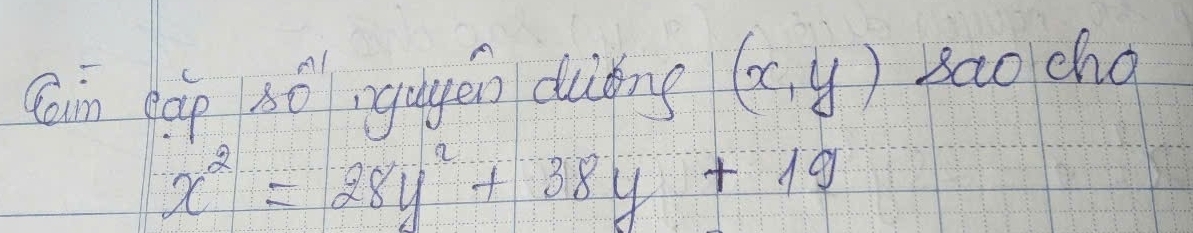 Tìm cặp số nguyên dương (x, y) sao cho
x² = 28y² + 38y + 19